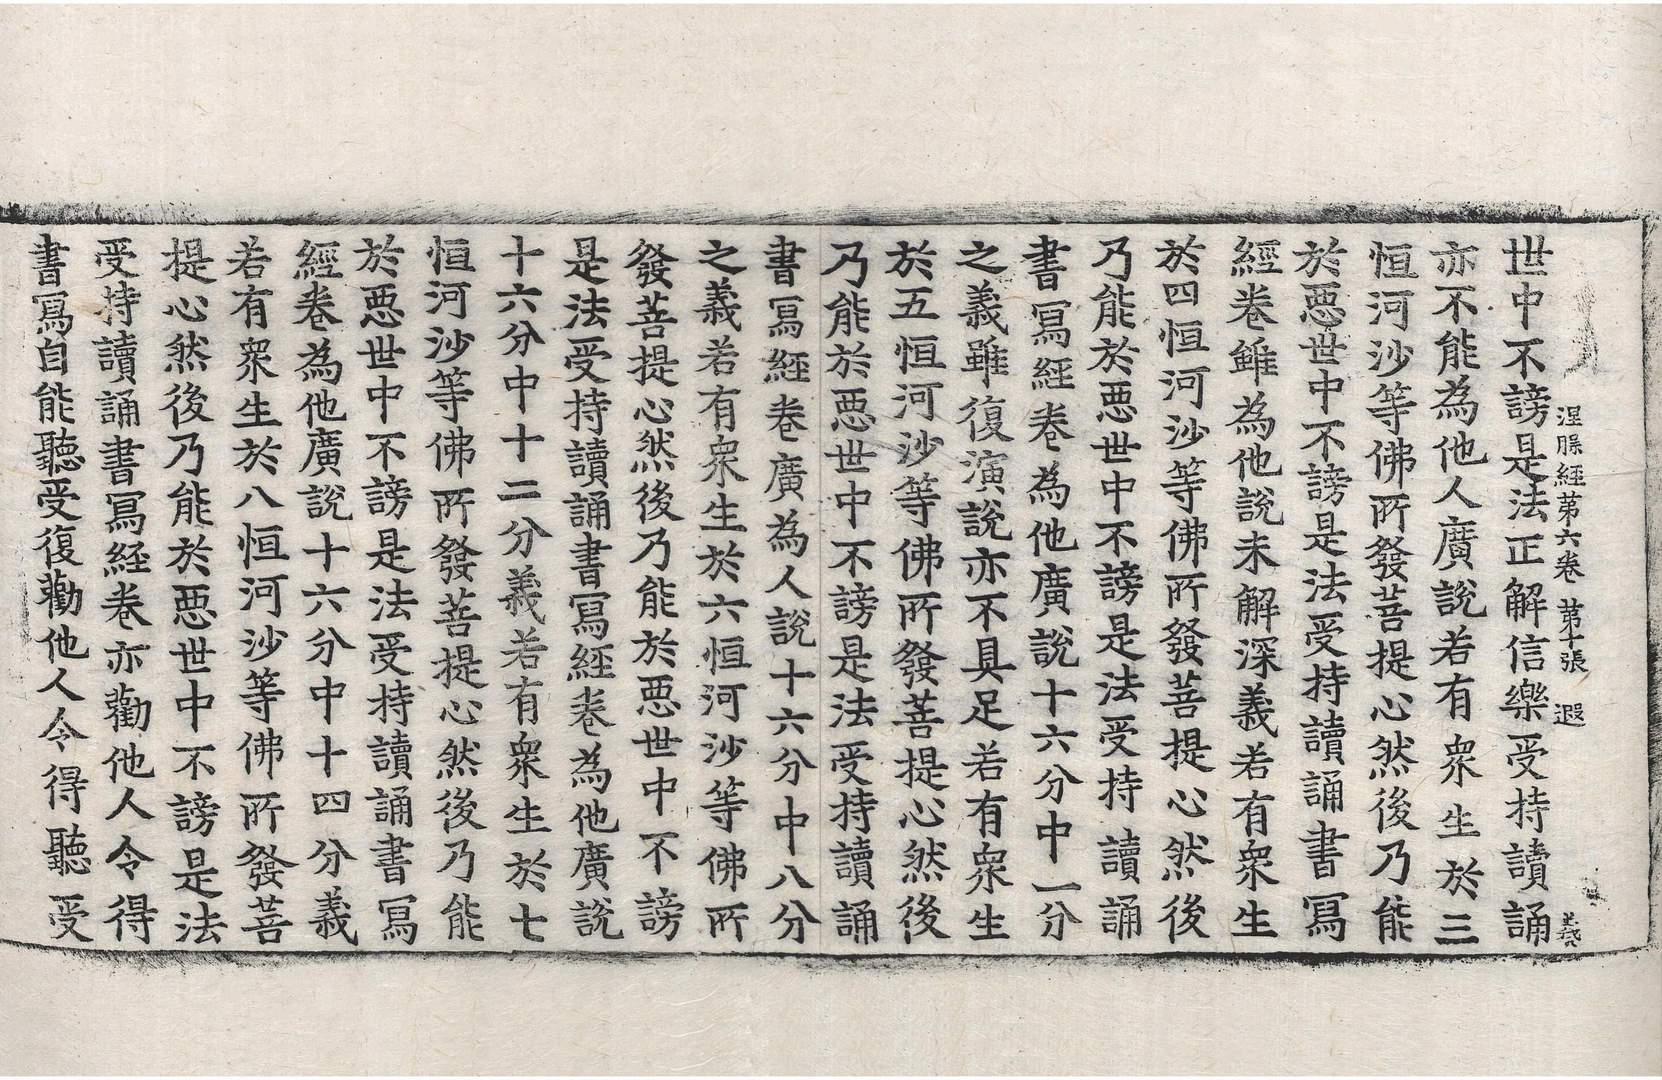 涅槃經第六卷 第十張 遐
世中不謗是法正解信樂受持讀誦
亦不能為他人廣說若有衆生於三
恒河沙等佛所發菩提心然後乃能
於惡世中不謗是法受持讀誦書寫
經卷雖為他說未解深義若有衆生
於四恒河沙等佛所發菩提心然後
乃能於惡世中不謗是法受持讀誦
書寫經卷為他廣說十六分中一分
之義雖復演說亦不具足若有衆生
於五恒河沙等佛所發菩提心然後
乃能於惡世中不謗是法受持讀誦
書寫經卷廣為人說十六分中八分
之義若有衆生於六恒河沙等佛所
發菩提心然後乃能於惡世中不謗
是法受持讀誦書寫經卷為他廣說
十六分中十二分義若有衆生於七
恒河沙等佛所發菩提心然後乃能
於惡世中不謗是法受持讀誦書寫
經卷為他廣說十六分中十四分義
若有衆生於八恒河沙等佛所發菩
提心然後乃能於惡世中不謗是法
受持讀誦書寫經卷亦勸他人令得
書寫自能聽受復勸他人令得聽受